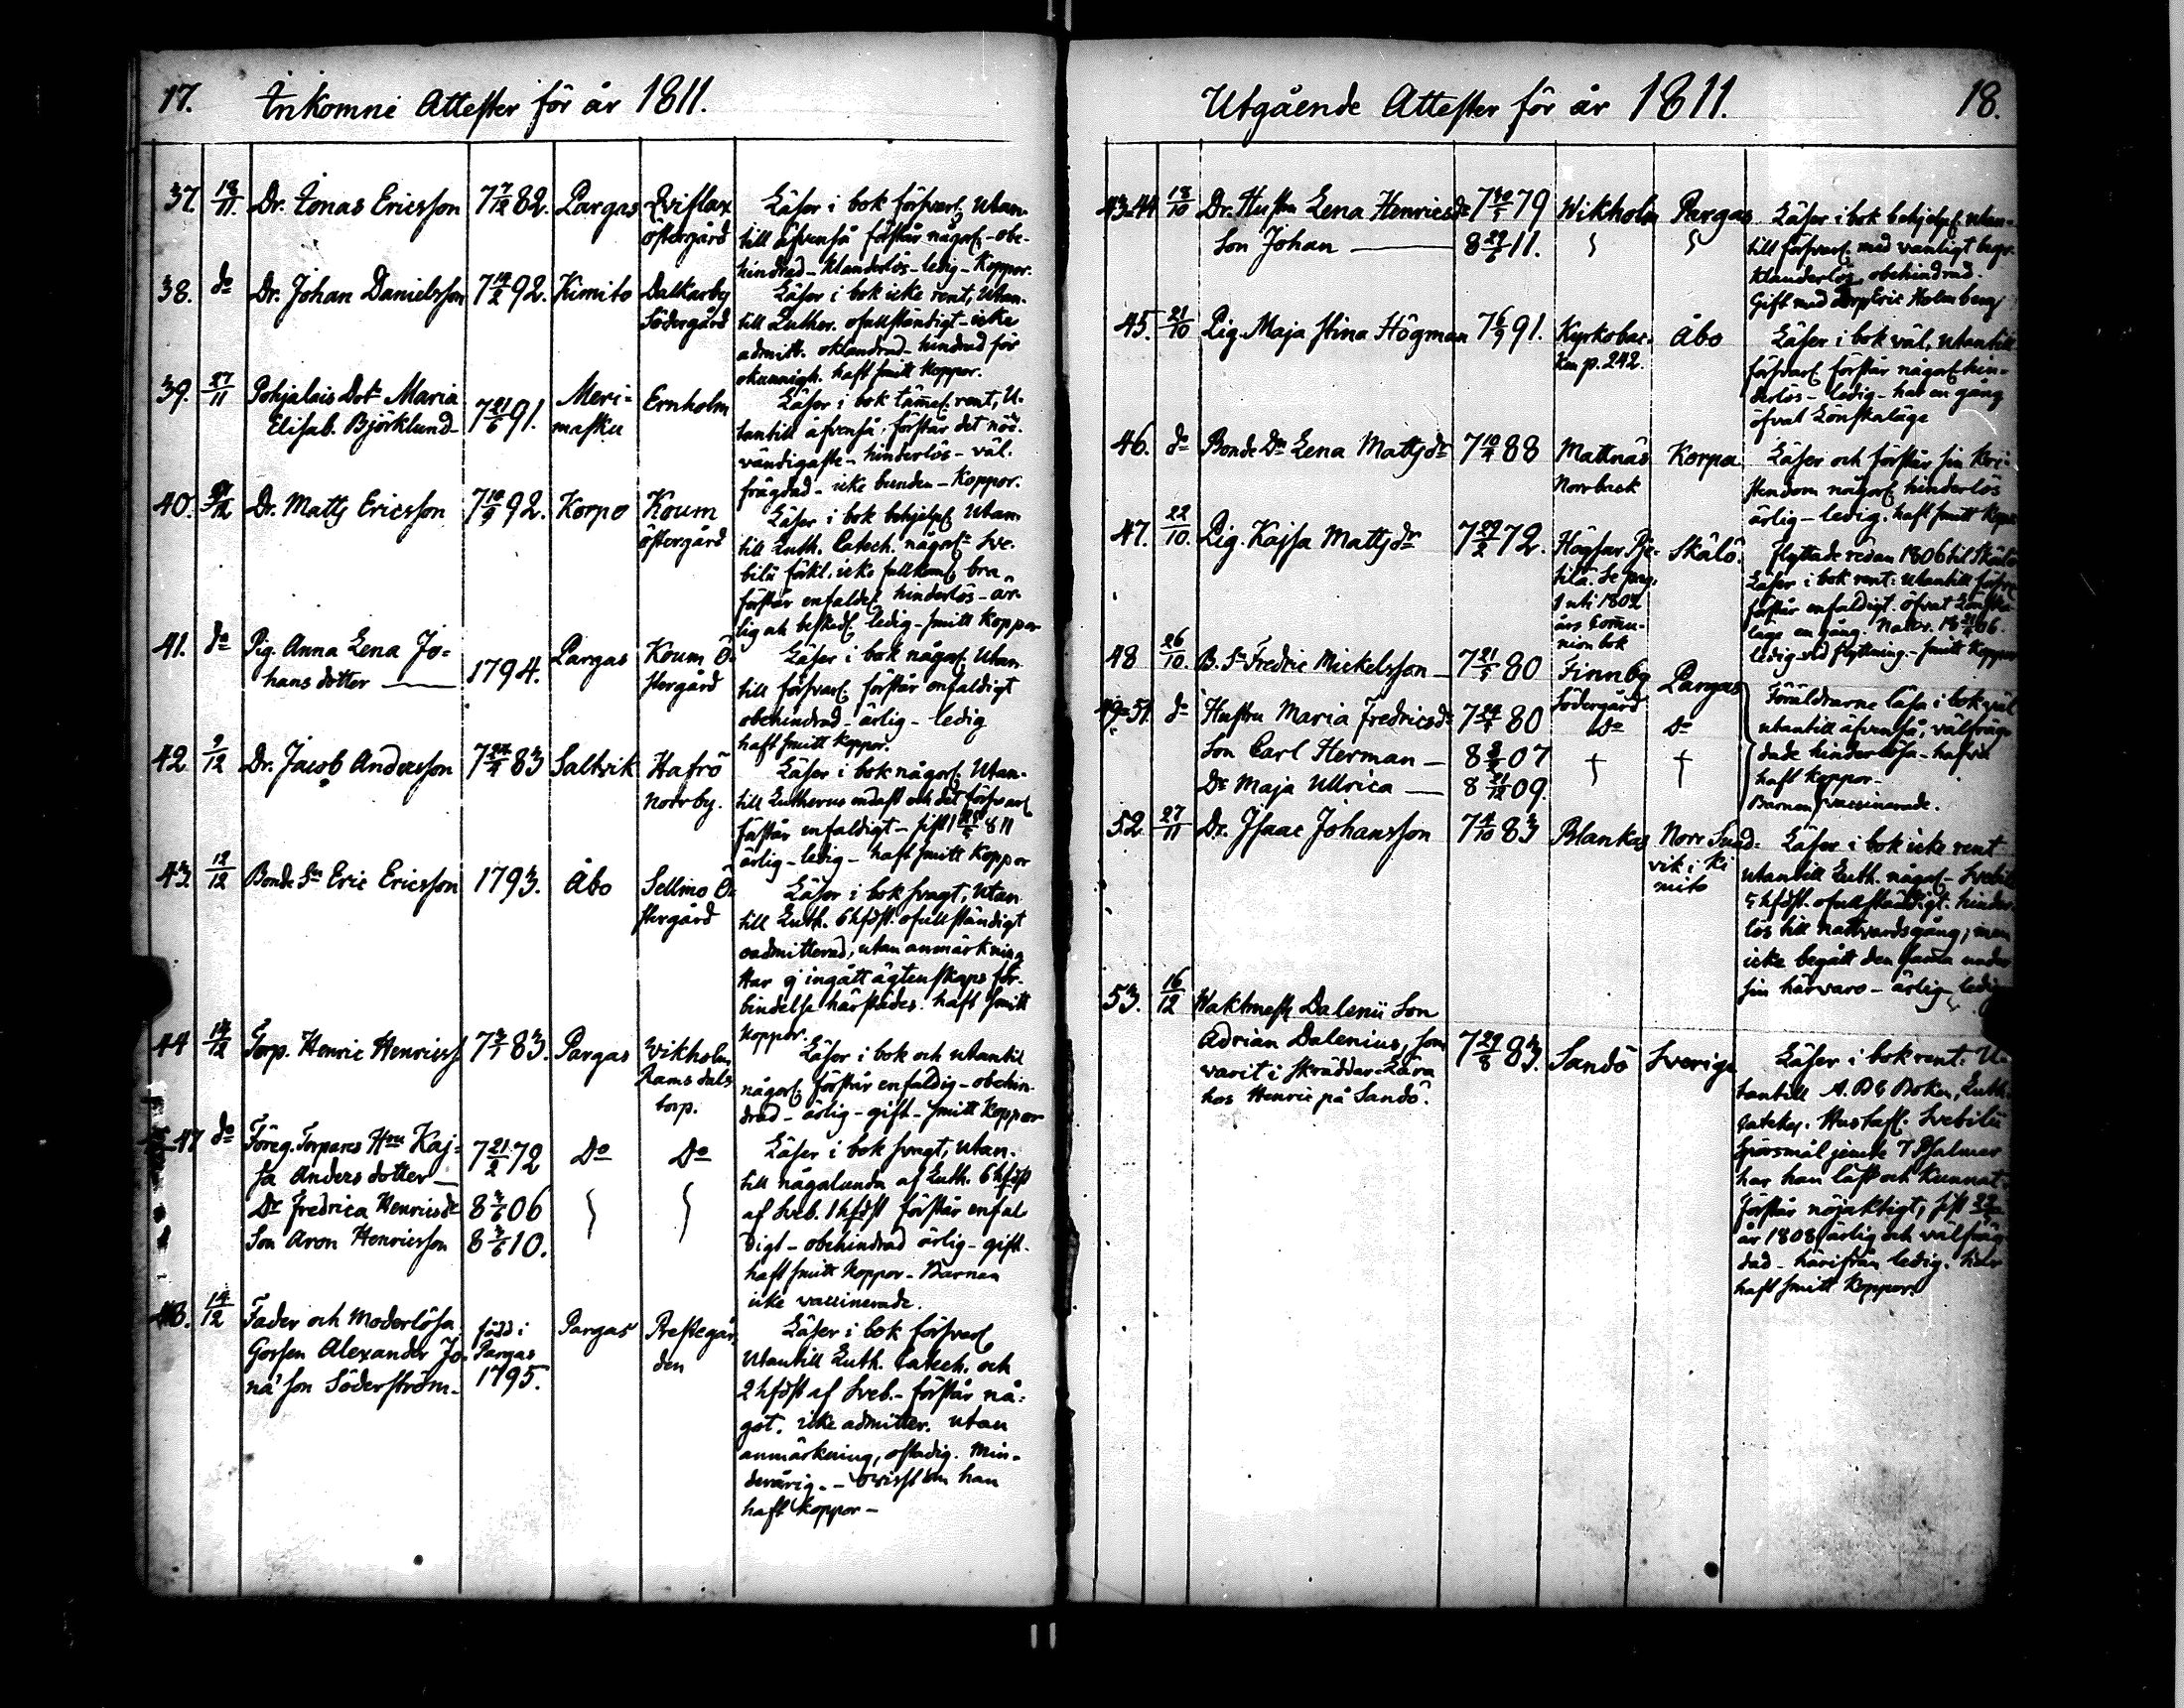 17. Inkomne Attester för år 1811.
37. 18/11. Dr. Jonas Ericsson 7 7/12 82. Pargas Qviflax östergård
Läser i bok försvarl. utan-
till äfvenså förstår någorl. - obe-
hindrad - klanderlös - ledig - Koppor.
38. do Dr. Johan Danielsson 7 14/2 92. Kimito Dalkarby Södergård
Läser i bok icke rent, Utan-
till Luther. ofullständigt - icke
admitt. oklandrad - hindrad för
okunnigh. haft smitt koppor.
39. 27/11 Pohjalais Dotr Maria
Elisab. Björklund - 7 21/6 91. Meri-masku Ernholm
Läser i bok tämel. rent, U-
tantill äfvenså. förstår det nöd-
vändigaste - hinderlös - väl-
frägdad - icke bunden - Koppor.
40. Dr. Matts Ericsson 7 10/9 92. Korpo Koum östergård
Läser i bok behjelpl. Utan-
till Luth. Catech. någorl. Sve-
bilii förkl. icke fullkoml. bra,
förstår enfaldel. hinderlös - är-
lig och beskedl. ledig - smitt koppor
41. do Pig. Anna Lena Jo-
hans dotter 1794. Pargas Koum Ö-stergård
Läser i bok någorl. Utan-
till försvarl. förstår enfaldigt
obehindrad - ärlig - ledig
haft smitt koppor.
42 9/12 Dr. Jacob Andersson 7 24/4 83 Saltvik Hafrö Norrby.
Läser i bok någorl. Utan-
till Lutherus endast och det försvarl
förstår enfaldigt - sist 811
ärlig - ledig - haft smitt koppor
43. 12/12 Bonde Sn Eric Ericsson 1793. Åbo Sellmo Ö-stergård
Läser i bok svagt, Utan-
till Luth. 6 hfdst. ofullständigt
oadmitterad, utan anmärkning
Har ej ingått ägtenskaps för-
bindelse härstädes. haft smitt
koppor.
44 14/12 Torp. Henric Henricss. 7 3/1 83. Pargas Vikholm Ramsdals torp.
Läser i bok och utantil
någorl. förstår enfaldig - obehin-
drad - ärlig - gift - smitt koppor
47 do Föreg. Torpares Hru Kaj-
sa Anders dotter 7 21/2 72 Do Do
Dr Fredrica Henricsdr 8 3/6 06
Son Aron Henricsson 8 3/6 10.
Läser i bok svagt, utan-
till någalunda af Luth. 6 hfdst
af Sveb. 1 hfdst förstår enfal-
digt - obehindrad ärlig - gift.
haft smitt koppor - Barnen
icke vaccinerade.
48. 14/12 Fader och Moderlösa
Gossen Alexander Jo-
na's son Söderström. född i Pargas 1795. Pargas Prestegår-den
Läser i bok försvarl
Utantill Luth. Catech. och
2 hfdst af Sveb. - förstår nå-
got. icke admitter. utan
anmärkning, ostadig. Min-
derårig. - ovisst om han
haft koppor -
Utgående Attester för år 1811. 18.
43-44 18/10 Dr. Hustru Lena Henricsdr 7 30/5 79 Wikholm Pargas
Son Johan 8 29/5 11.
Läser i bok behjelpl. utan-
till försvarl. med vanligt begr.
klanderlös, obehindrad.
Gift med Eric Holmberg
45. 21/10 Pig. Maja Stina Högman 7 6/9 91. Kyrkobac-ken p. 242. Åbo
Läser i bok väl, utantill
försvarl. förstår någorl. hin-
derlös - ledig - har en gång
öfvat Lönskaläge
46. do Bonde Dr Lena Mattsdr 7 10/4 88 Mattnäs Norrback Korpo
Läser och förstår sin Kri-
stendom någorl. hinderlös
ärlig - ledig. haft smitt kopp.
47. 22/10. Pig. Kajsa Mattsdr 7 29/2 72. Högsar
se pag.
1802
års Commu-
nion bok Skälö.
Flyttade redan 1806 til Skälö
Läser i bok rent: utantill försvarl
förstår enfaldigt. öfvat Lönska-
läge en gång. Nattv. 06.
ledig vid flyttning. - smitt koppor
48 26/10. B. Sn Fredric Mickelsson - 7 21/5 80 Finnby Södergård Pargas
49-51. do Hustru Maria Fredricsdr 7 80 Do Do
Son Carl Herman - 8 07
Dr Maja Ullrica - 8 21/12 09.
Föräldrarne läsa i bok väl
utantill äfvenså, välfräg-
dade hinderlösa - hafva
haft koppor -
Barnen vaccinerade.
52. 27/11 Dr. Isaac Johansson 7 4/10 83 Blankas Norr Sund-vik i Ki-mito
Läser i bok icke rent
utantill Luth. någorl - Svebilii
5 hfdst. ofullständigt. hinder-
lös till nattvardsgång, men
icke begått den samma under
sin härvaro - ärlig - ledig
53. 16/12 Waktmest. Dalenii Son
Adrian Dalenius, som
varit i Skräddar-Lära
hos Henric på Sandö. 7 29/8 83. Sandö Sverige
Läser i bok rent. U-
tantill A.B.C Boken, Luth.
Cateches. Hustafl. Svebilii
Spörsmål jemte 7 Psalmer
har han läst och kunnat.
Förstår nöjaktigt, sist
år 1808 ärlig och välfräg-
dad - härifrån ledig.
haft smitt koppor.